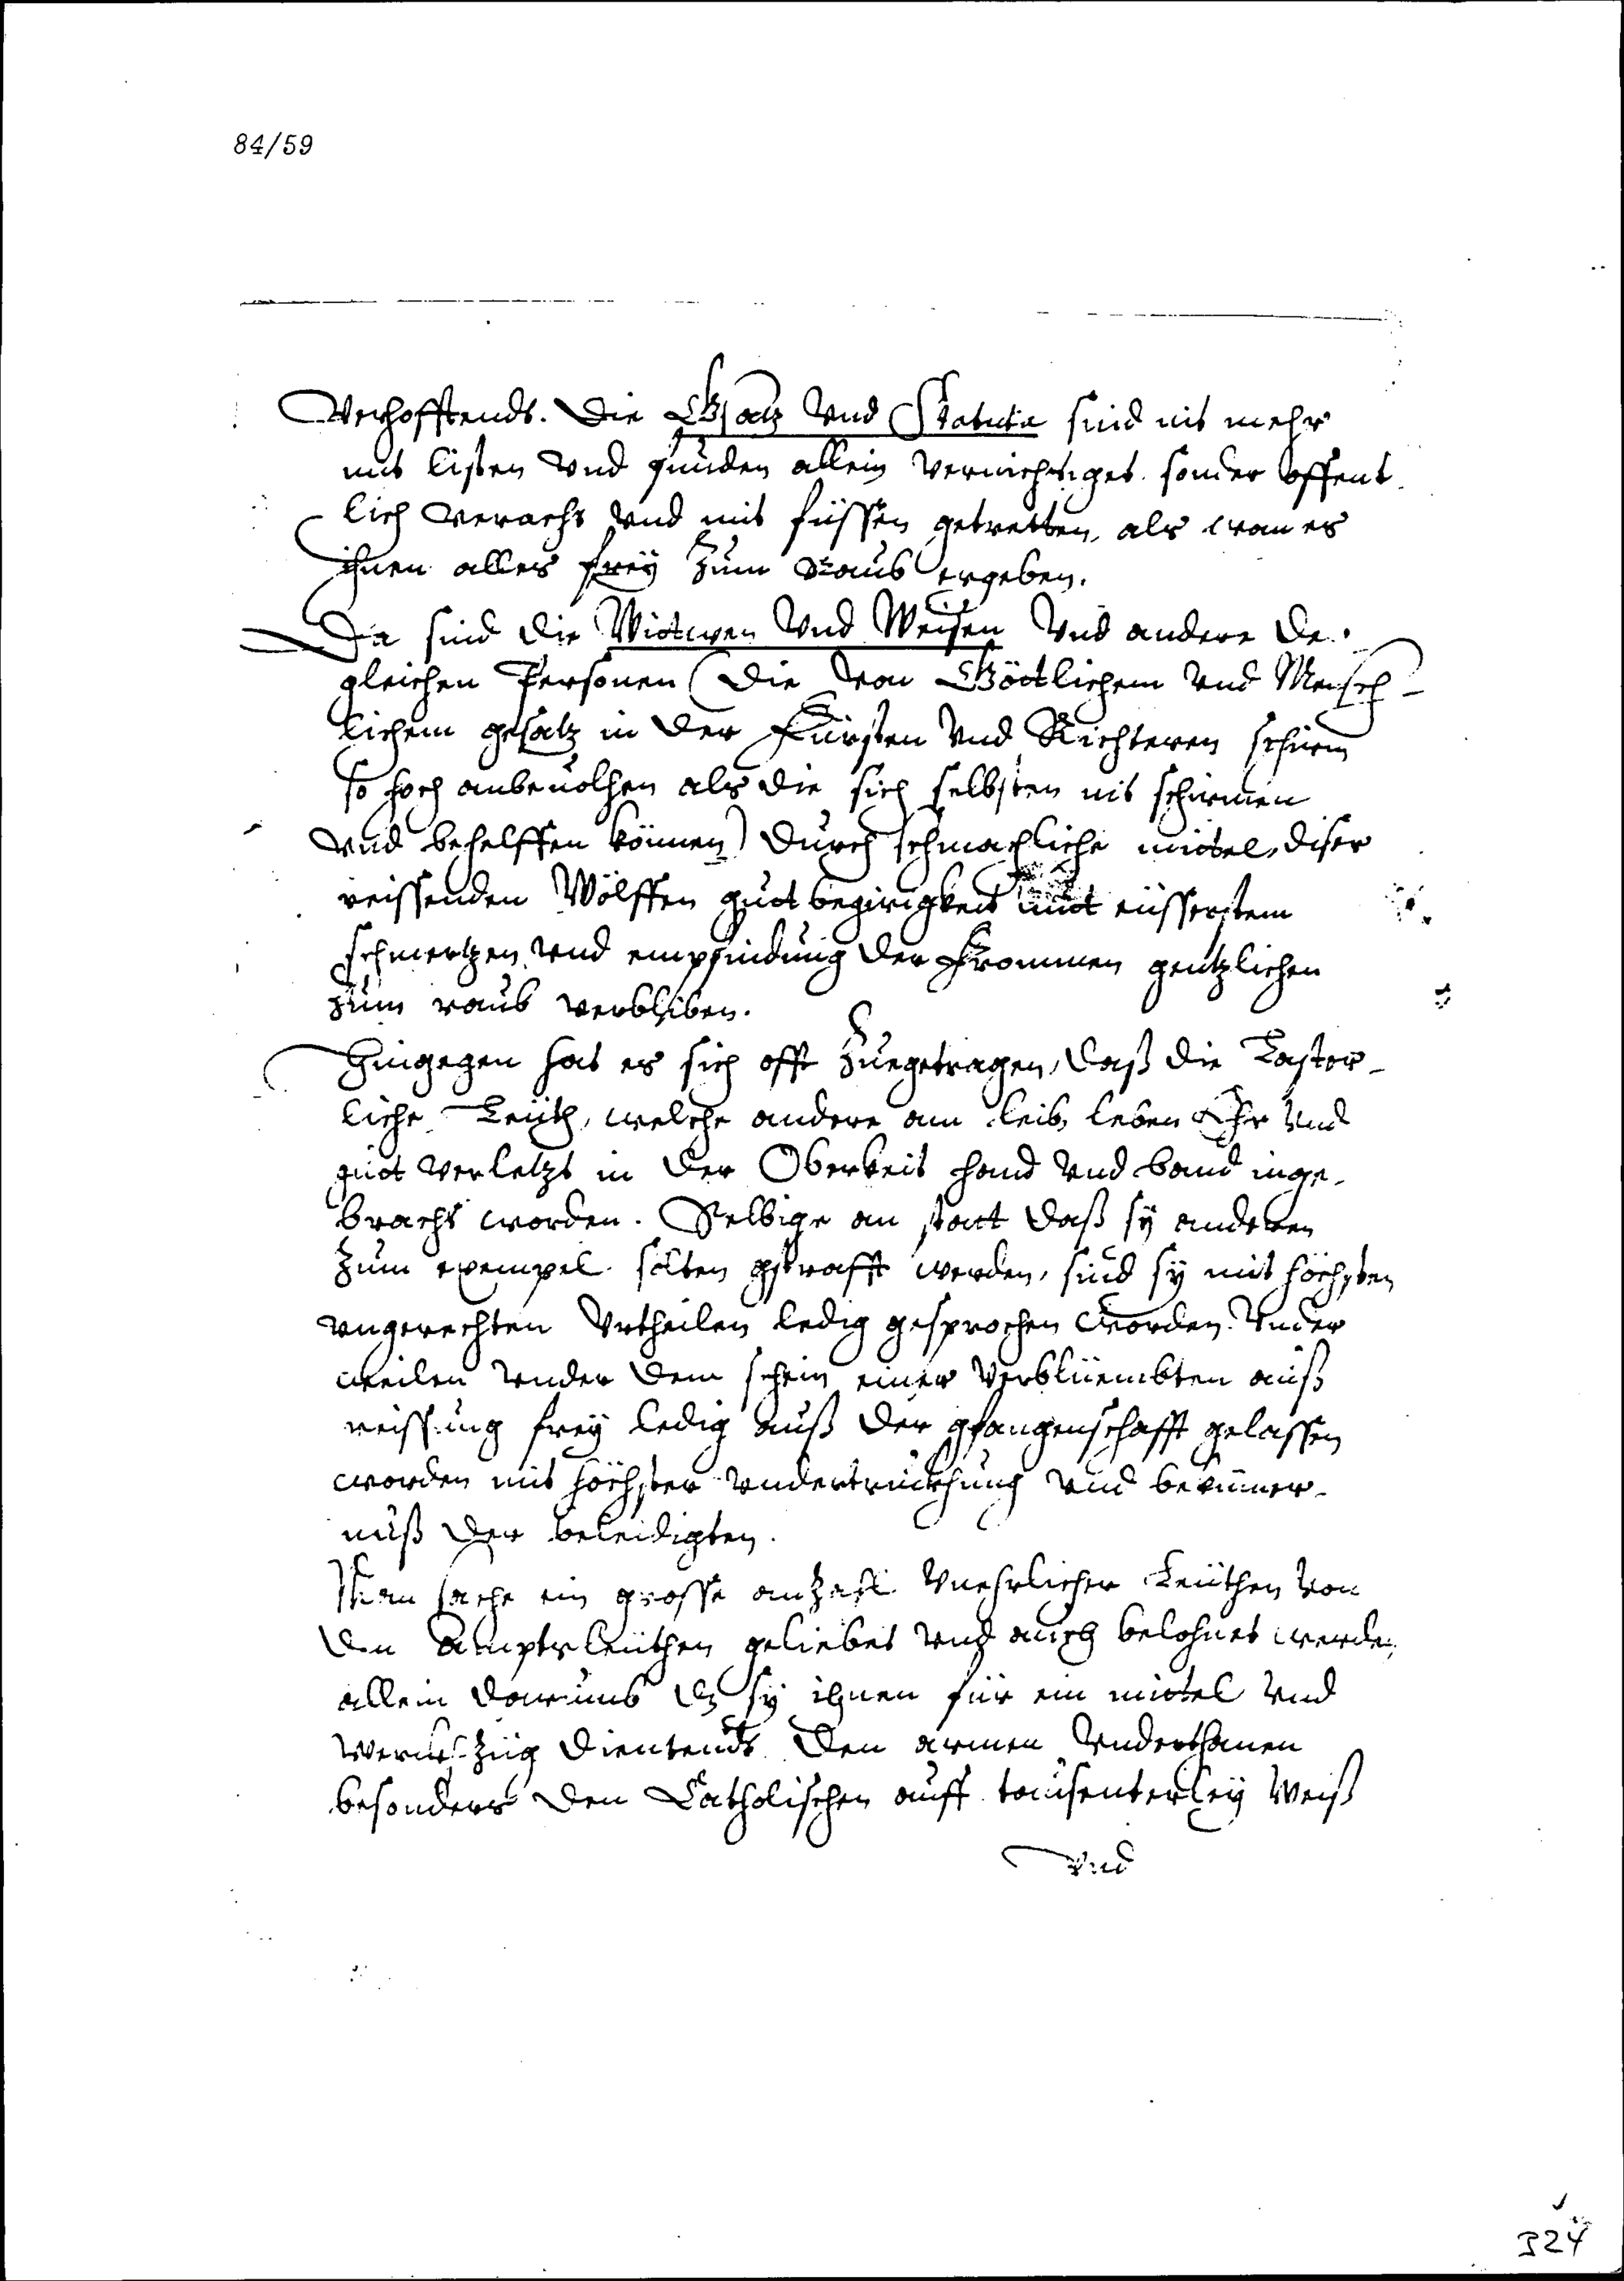 84/59
Verhofftends. Die Gsatz Vnd Statuta sind nit mehr
mit listen Vnd fünden allein Vernichtiget. sonder offent
lich Veracht Vnd mit füssen getretten, als wan es
ihnen alles frey zum Raub ergeben.
Da sind die Witwen Vnd Weisen Vnd andere der
gleichen Personen (die von Göttlichem Vnd Mensch-
lichem gesatz in der Fürsten Vnd Richteren schirm
so hoch anbeuolhen als die sich selbsten nit schirmen
Vnd behelffen können) durch schmachliche mittel, diser
reissenden Wölffen guot begirigkeit mit eüsserstem
schmertzen Vnd empfindung der Frommen gentzlichen
zum raub verbliben.
Hingegen hat es sich offt zuegetragen, daß die Laster-
liche Leüth, welche andere am leib, leben Ehr Vnd
guot Verletzt in der Oberkeit hand Vnd band inge-
bracht worden. Selbige an statt daß sy anderen
zum exempel solten gstrafft werden, sind sy mit höchsten
vngerechten Vrtheilen ledig gesprochen worden. Vnder
weilen vnder dem schein einer Verblüembten auß
reissung frey ledig auß der gfangenschafft gelassen
worden mit höchster vndertruckhung Vnd bekümer-
nuß der beleidigten.
Man sache ein grosse anzahl Vnehrlicher Leüthen Von
den Amptsleüthen geliebet Vnd auch belohnet werden,
allein darumb dz sy ihnen für ein mittel Vnd
Werckzüg dientend den armen Vnderthanen
besonders den Catholischen auff tausenterley Weiß
Vnd
324